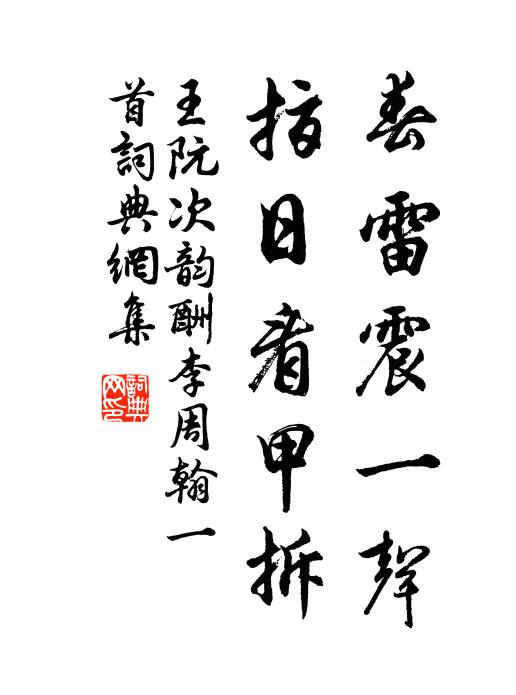 春雷震一聲
指日看甲拆
王阮次韵酬李周翰一
首詞典網集
詞典
网印